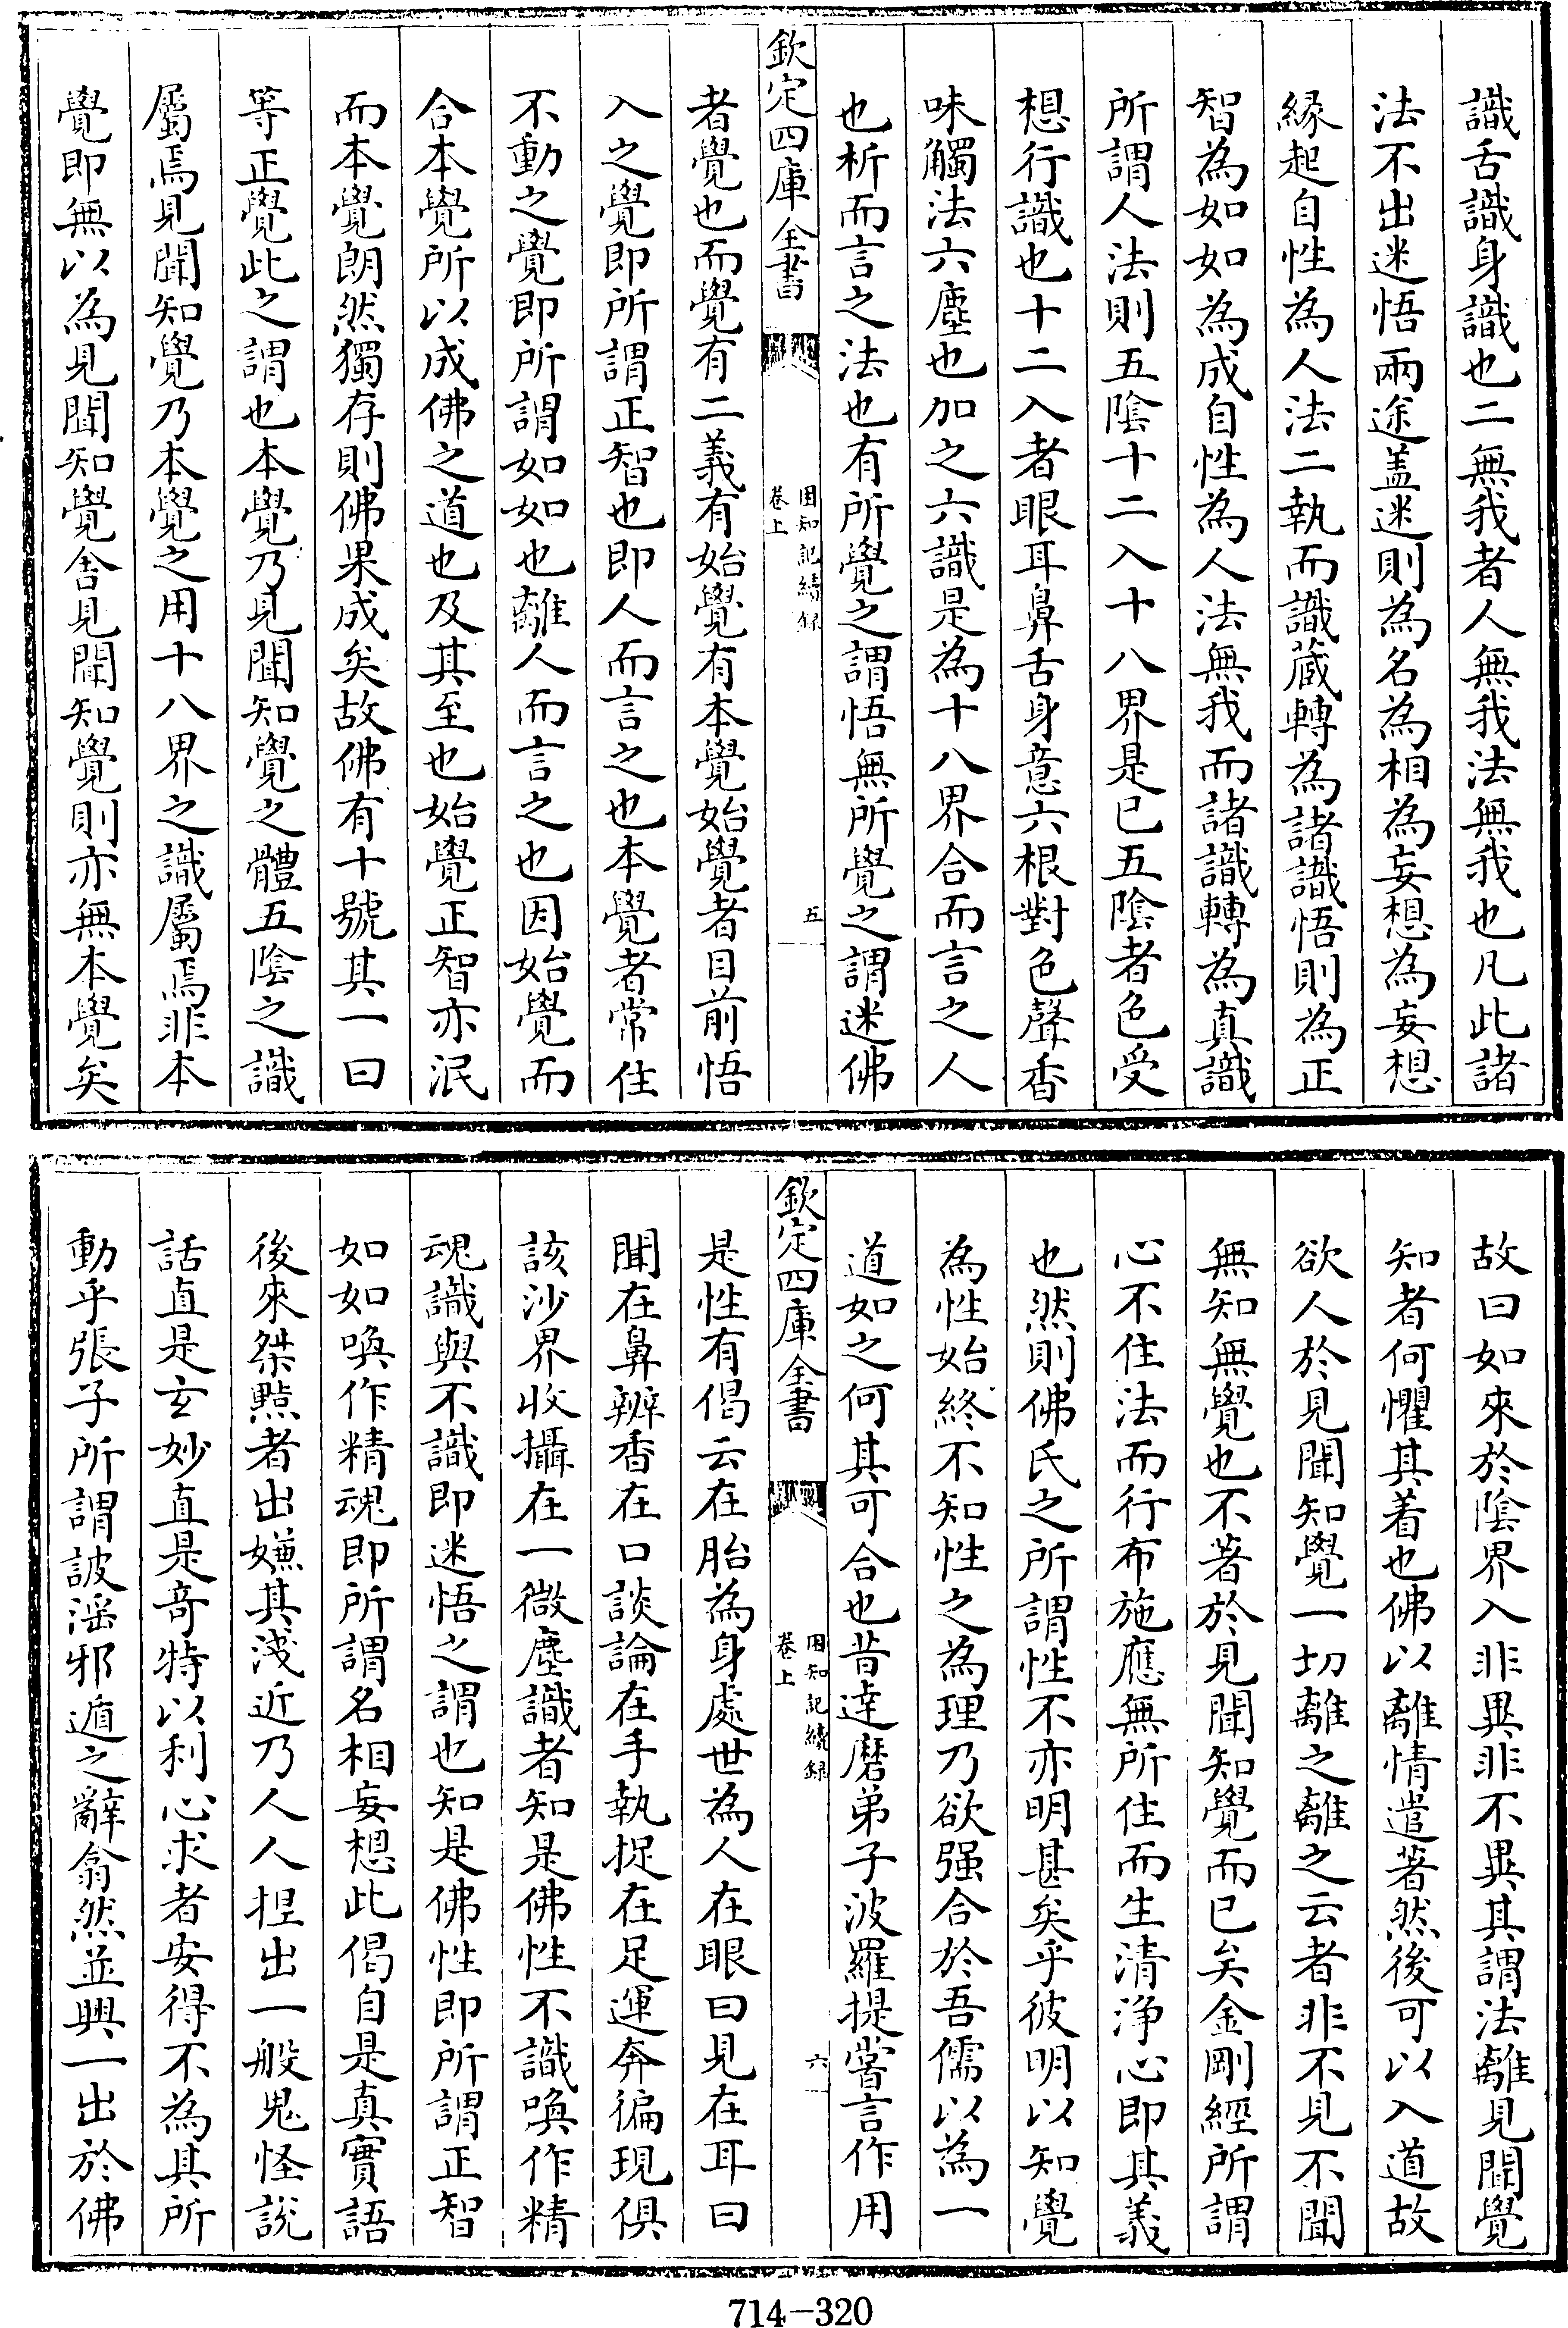 識舌識身識也二無我者人無我法無我也凡此諸
法不出迷悟兩途盖迷則為名為相為妄想為妄想
縁起自性為人法二執而識蔵轉為諸識悟則為正
智為如如為成自性為人法無我而諸識轉為真識
所謂人法則五陰十二入十八界是已五陰者色受
想行識也十二入者眼耳鼻舌身意六根對色聲香
味觸法六塵也加之六識是為十八界合而言之人
也析而言之法也有所覺之謂悟無所覺之謂迷佛
欽定四庫全書
困知記續録
卷上
五
者覺也而覺有二義有始覺有本覺始覺者目前悟
入之覺即所謂正智也即人而言之也本覺者常住
不動之覺即所謂如如也離人而言之也因始覺而
合本覺所以成佛之道也及其至也始覺正智亦泯
而本覺朗然獨存則佛果成矣故佛有十號其一曰
等正覺此之謂也本覺乃見聞知覺之體五陰之識
屬焉見聞知覺乃本覺之用十八界之識屬焉非本
覺即無以為見聞知覺舍見聞知覺則亦無本覺矣
故曰如來於陰界入非異非不異其謂法離見聞覺
知者何懼其着也佛以離情遣著然後可以入道故
欲人於見聞知覺一切離之離之云者非不見不聞
無知無覺也不著於見聞知覺而已矣金剛經所謂
心不住法而行布施應無所住而生清浄心即其義
也然則佛氏之所謂性不亦明甚矣乎彼明以知覺
為性始終不知性之為理乃欲强合於吾儒以為一
道如之何其可合也昔逹磨弟子波羅提嘗言作用
欽定四庫全書
困知記續録
卷上
六
是性有偈云在胎為身處世為人在眼曰見在耳曰
聞在鼻辨香在口談論在手執捉在足運奔徧現俱
該沙界收攝在一微塵識者知是佛性不識喚作精
魂識與不識即迷悟之謂也知是佛性即所謂正智
如如喚作精魂即所謂名相妄想此偈自是真實語
後來桀黠者出嫌其淺近乃人人捏出一般鬼怪說
話直是玄妙直是奇特以利心求者安得不為其所
動乎張子所謂詖淫邪遁之辭翕然並興一出於佛
714-320